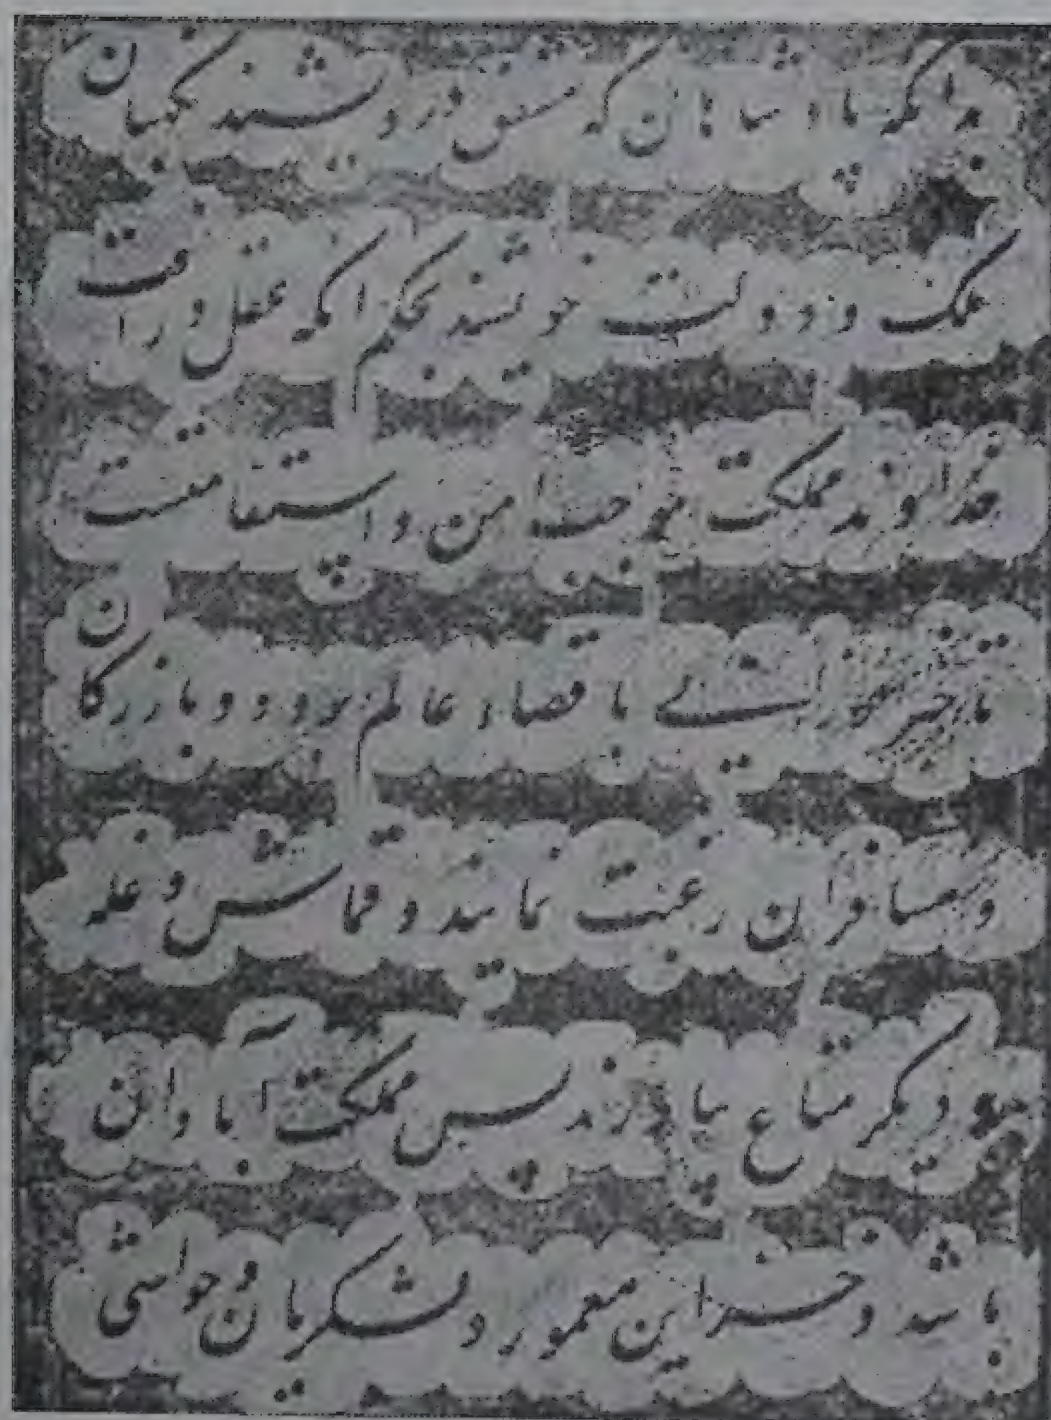 بدانکه پادشاهان که مشفق درویشند نگهبان
ملک و دولت خویشند بحکم انکه عدل و رافت
خداوند مملکت موجب امن و استقامت
تاخیر راستی باقصاء عالم برود و بازرگان
و مسافران رغبت نمایند و قماش و غله
و دیگر متاع بیاورند پس مملکت آبادان
باشد و خزاین معمور و لشکریان و حواشی